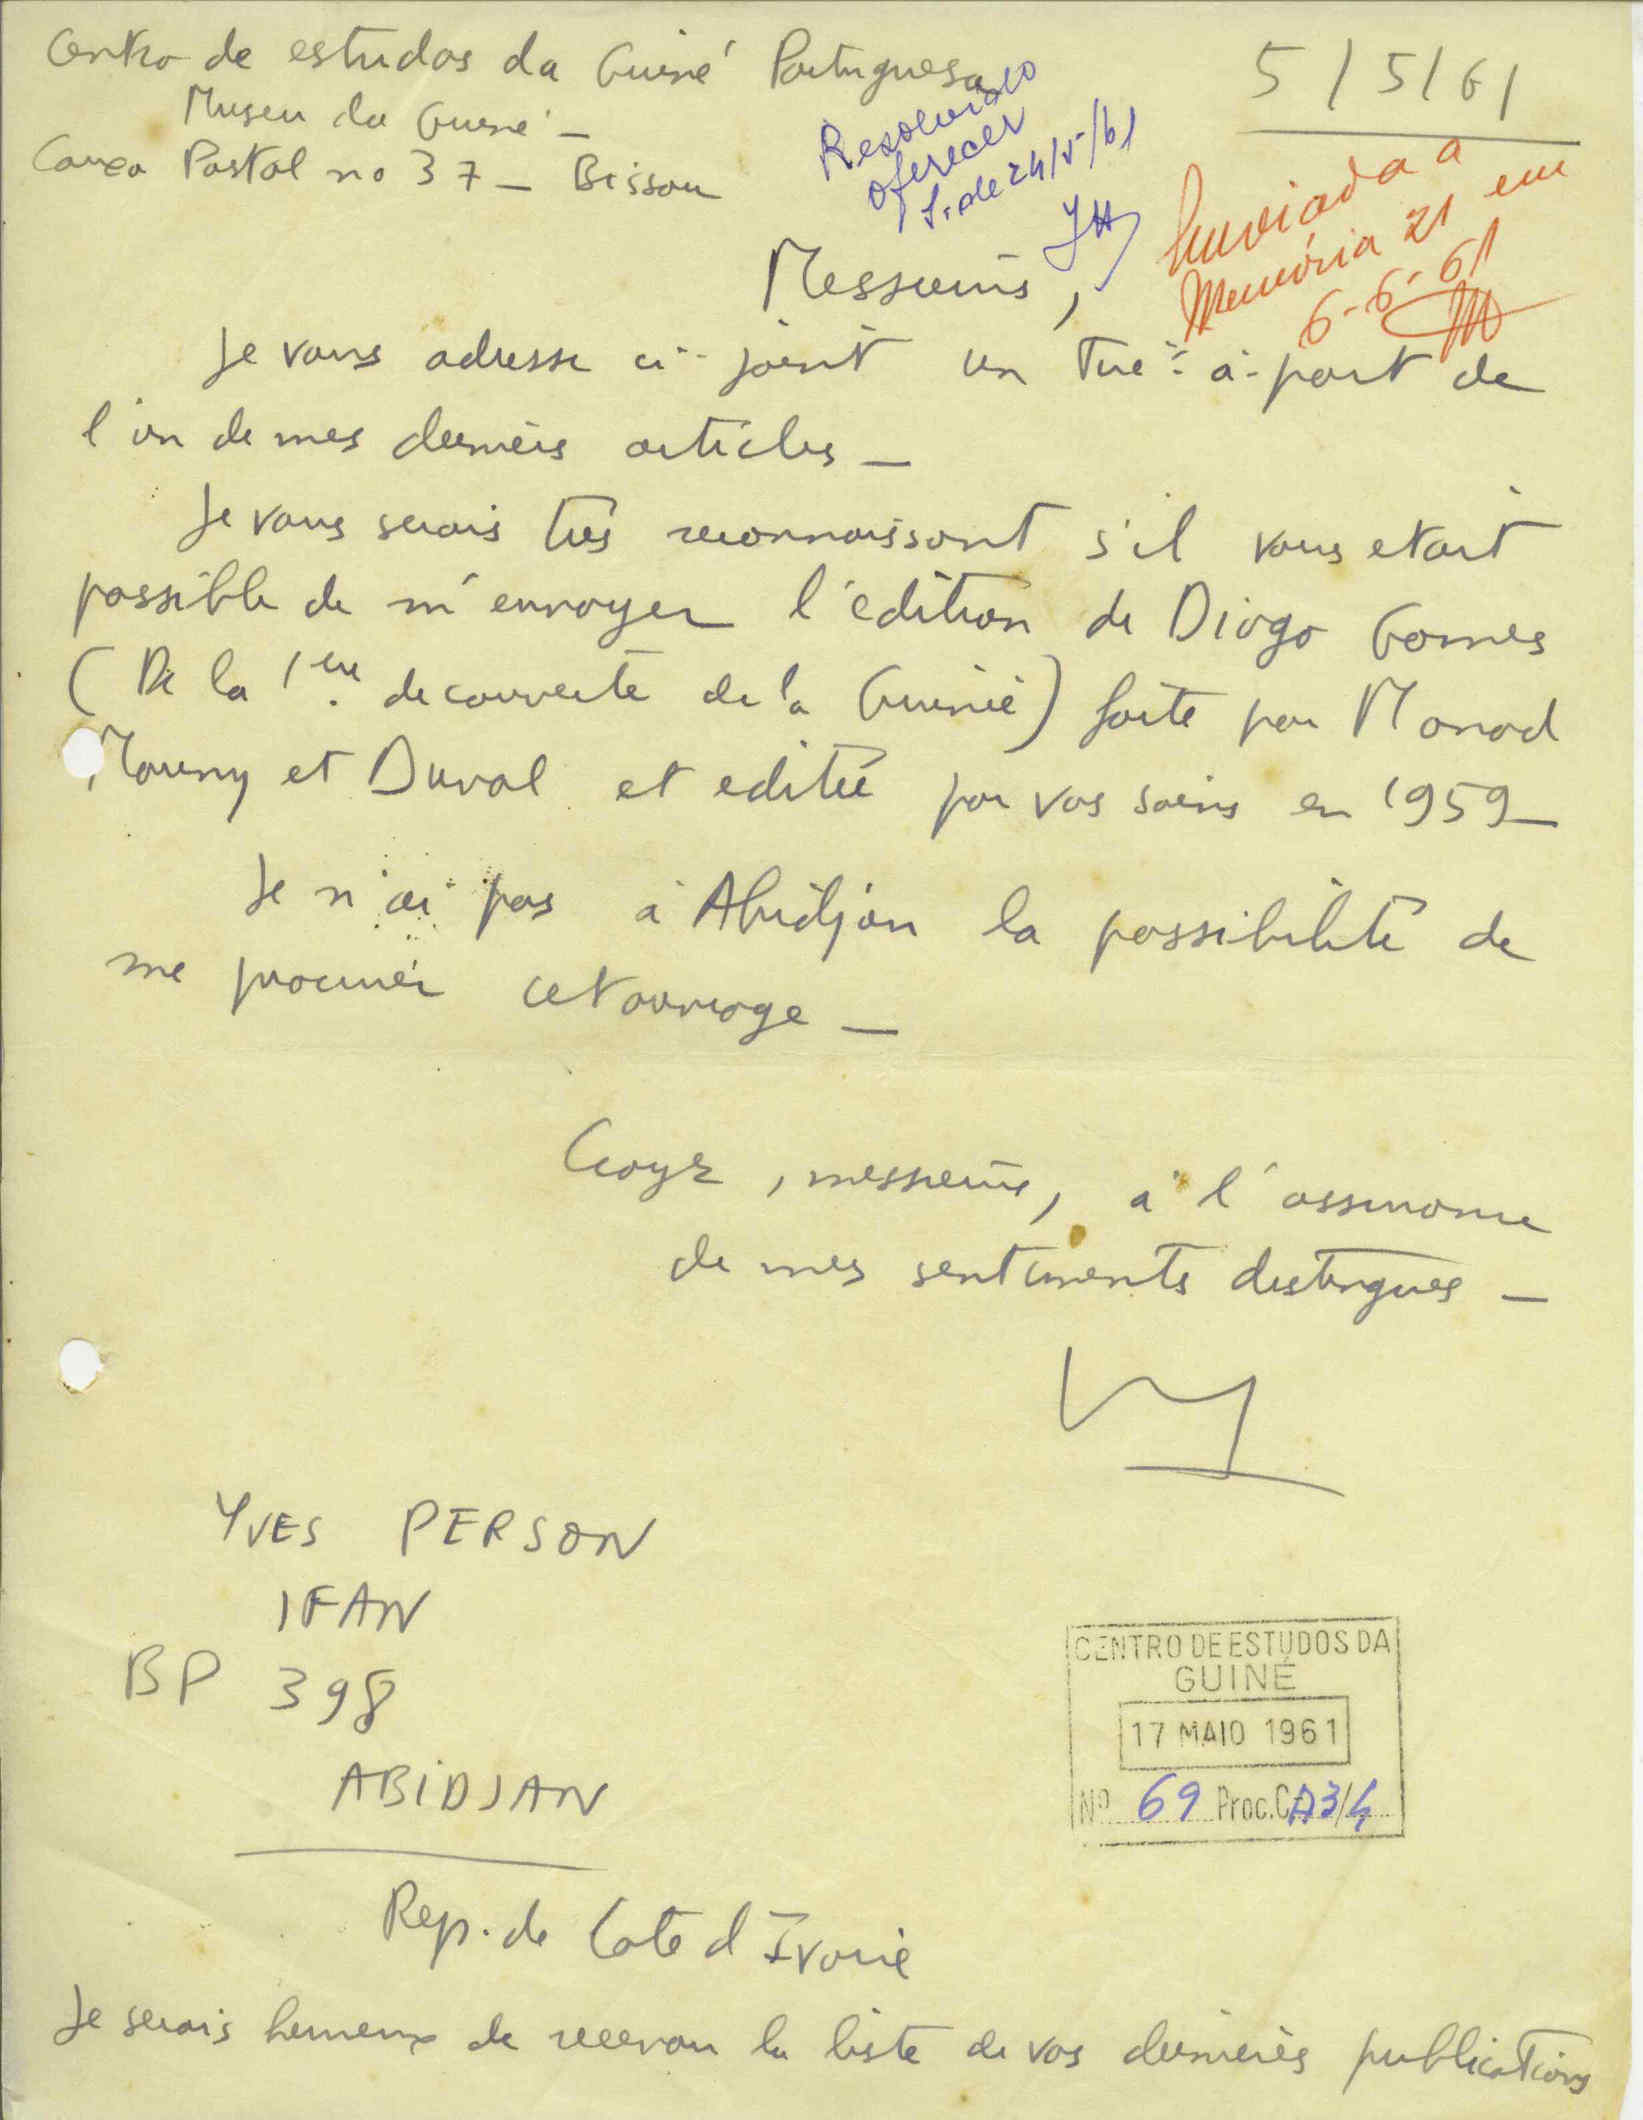 Centro de estudos da Guiné Portuguesa
5/5/61
Museu da Guiné —
Caixa Postal no 37 — Bissau
Resolvido
oferecer
S. de 24/5/61
Enviada a
Memória 21 em
6-6-61
Messieurs,
Je vous adresse ci-joint un tiré-à-part de
l'un de mes derniers articles —
Je vous serais très reconnaissant s'il vous etait
possible de m'envoyer l'édition de Diogo Gomes
(De la 1ère decouverte de la Guinée) faite par Monod
Mauny et Duval et editée par vos soins en 1959 —
Je n'ai pas à Abidjan la possibilité de
me procurer cet ouvrage —
Croyez, messieurs, à l'assurance
de mes sentiments distingues —
YVES PERSON
IFAN
BP 398
ABIDJAN
Rep. de Cote d'Ivoire
CENTRO DE ESTUDOS DA
GUINÉ
17 MAIO 1961
Nº 69 Proc. C A3/4
Je serais heureux de recevoir la liste de vos dernières publications